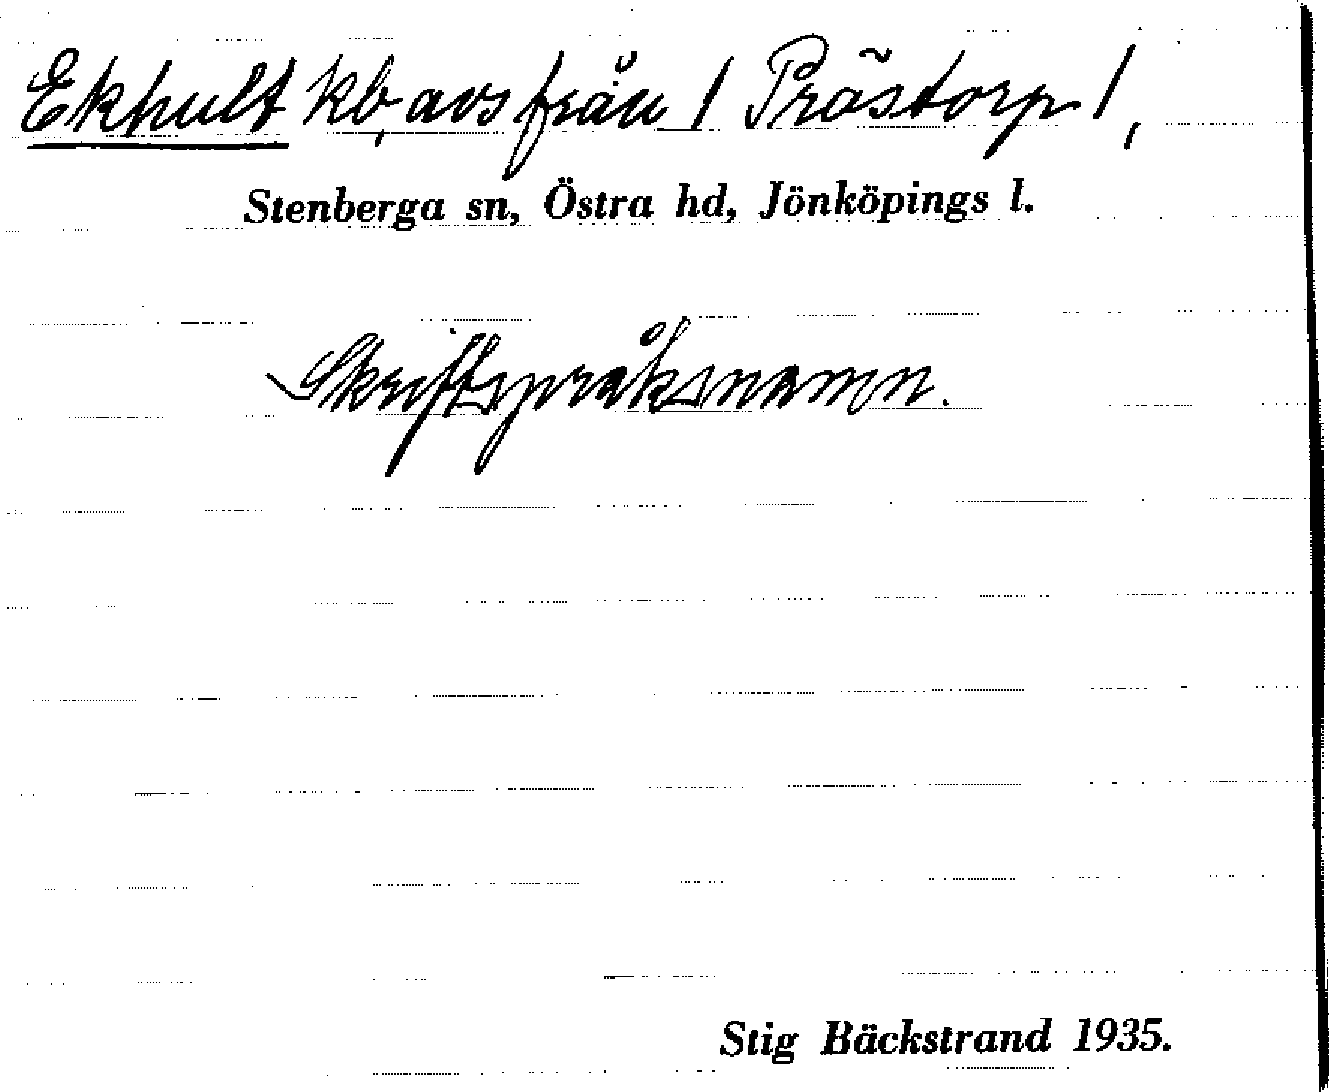 Ekhult kb, avs från 1 Prästorp 1,
Stenberga sn, Östra hd, Jönköpings l.
Skriftspråksnamn.
Stig Bäckstrand 1935.